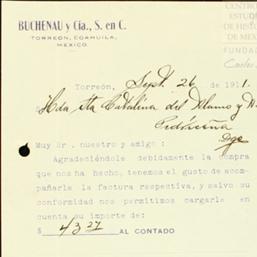 BUCHENAU y Cía., S. en C.
TORREÓN, COAHUILA,
MEXICO.
CENTRO
ESTUD
DE HISTO
DE MEX
FUNDA
Carlos
Torreón, Sept. 26 de 191 1.
Hda Sta Catalina del Alamo y
Pedriceña
Dgo
Muy Sr. nuestro y amigo :
Agradeciéndole debidamente la compra
que nos ha hecho, tenemos el gusto de acom-
pañarle la factura respectiva, y salvo su
conformidad nos permitimos cargarle en
cuenta su importe de:
$ 4/3 27 AL CONTADO